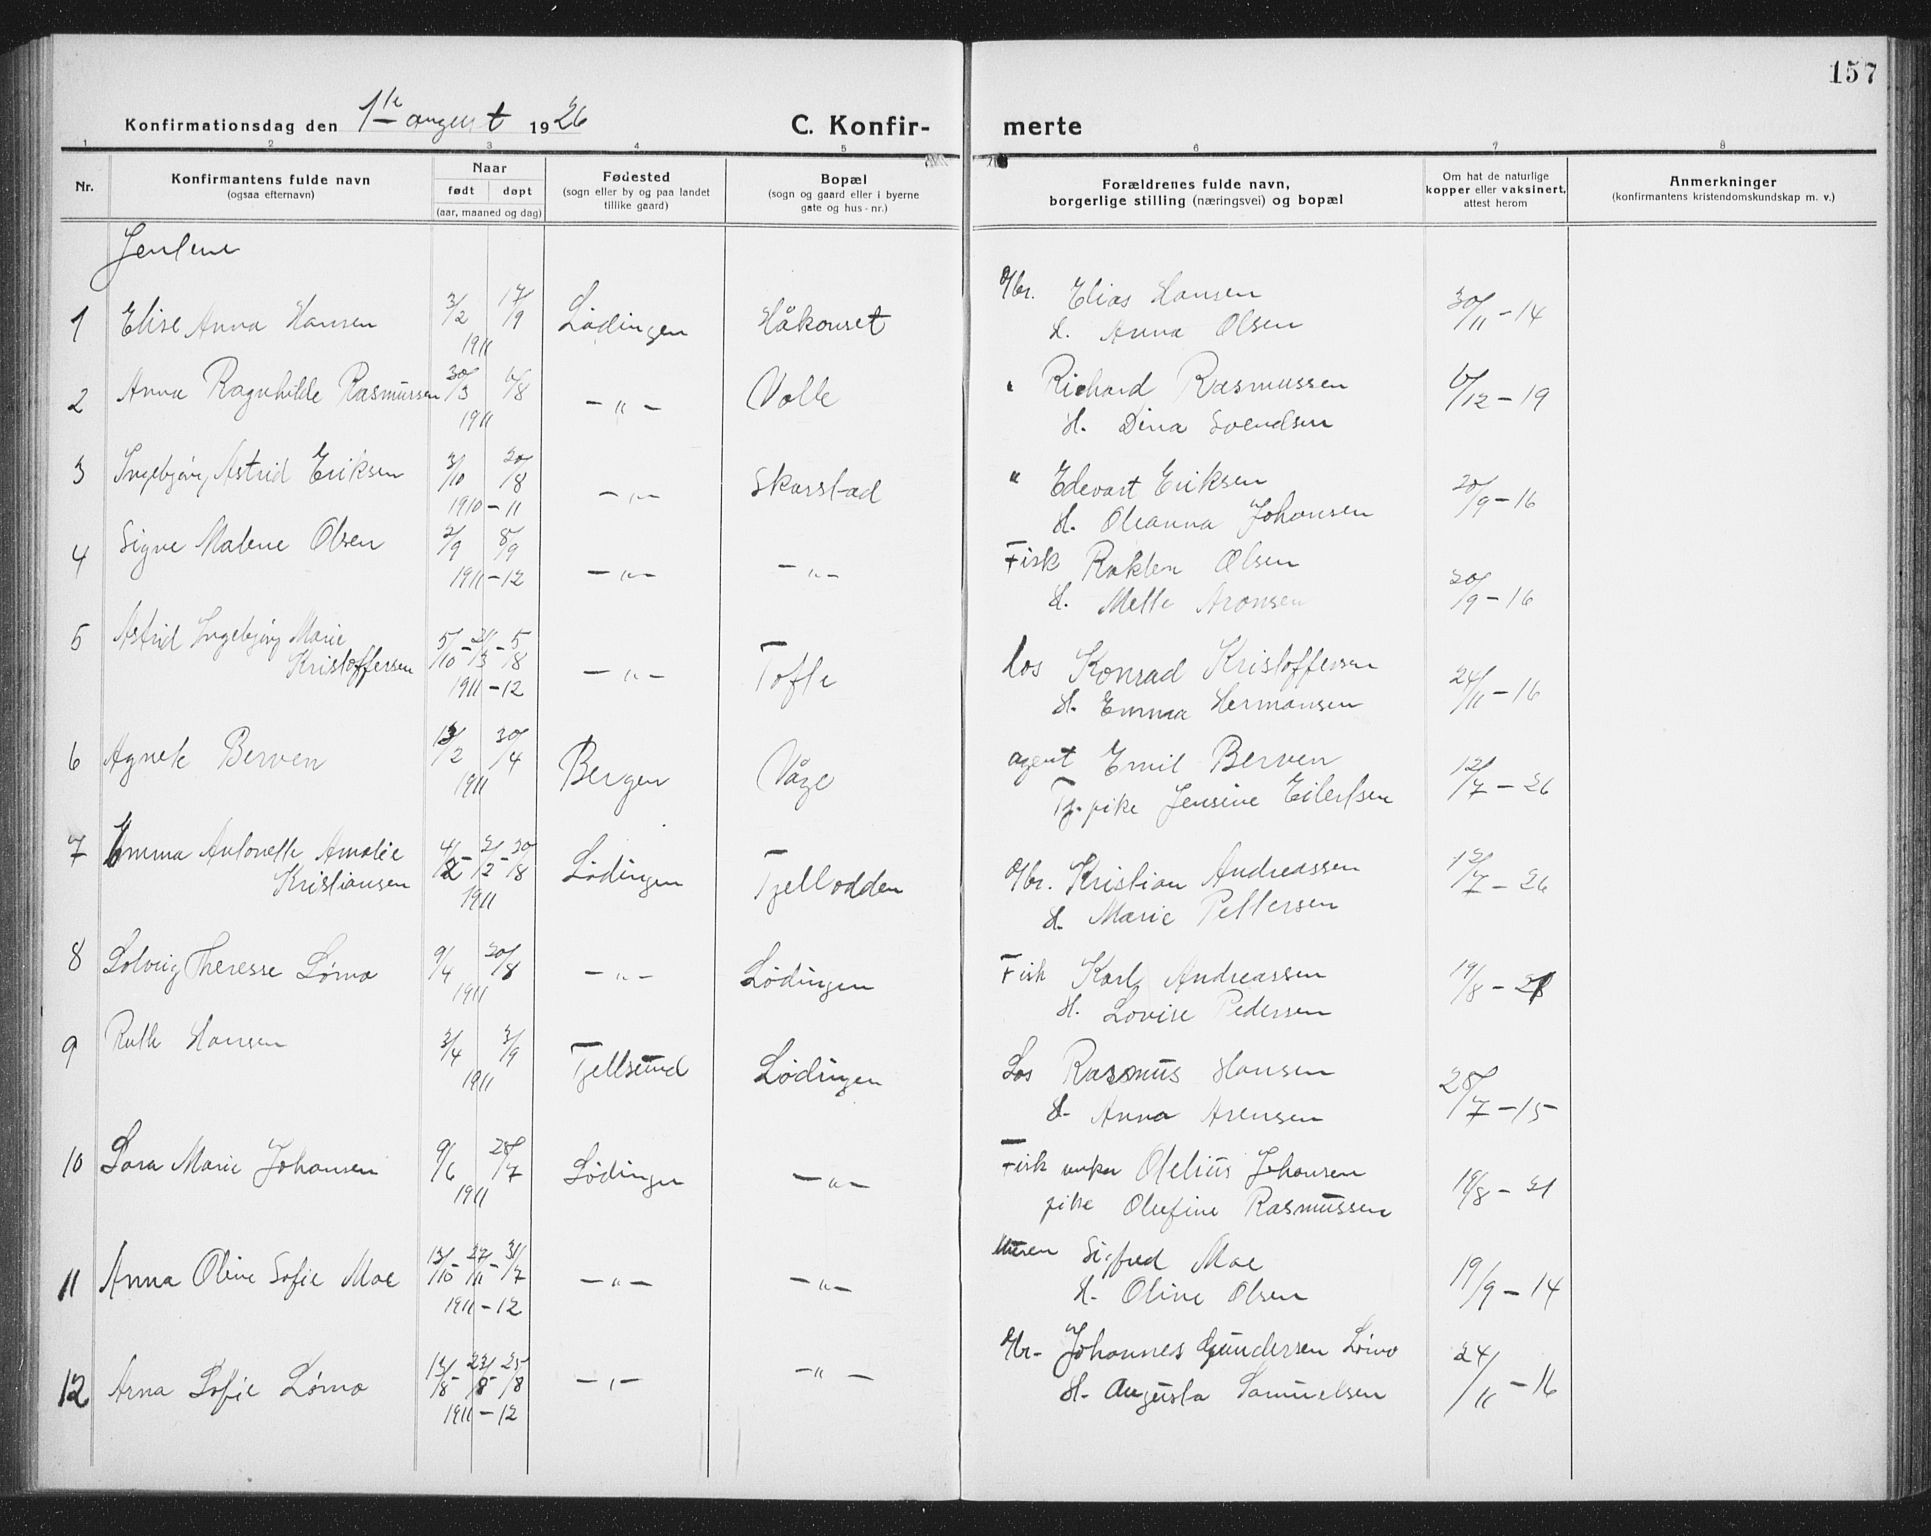 157
Konfirmationsdag den 1ste august 1926
C. Konfirmerte
1 2 3 4 5 6 7 8
Nr.
Konfirmantens fulde navn
(ogsaa efternavn)
Naar
født døpt
(aar, maaned og dag)
Fødested
(sogn eller by og paa landet
tillike gaard)
Bopæl
(sogn og gaard eller i byerne
gate og hus-nr.)
Forældrenes fulde navn,
borgerlige stilling (næringsvei) og bopæl
Om hat de naturlige
kopper eller vaksinert,
attest herom
Anmerkninger
(konfirmantens kristendomskundskap m. v.)
Jentene
1 Elise Anna Hansen 3/2 17/9 Lødingen Håkonset Gbr. Elias Hansen 30/11 - 14
1911 H. Anna Olsen
2 Anna Ragnhilde Rasmussen 30/3 6/8 - " - Volle " Richard Rasmussen 6/12 - 19
1911 H. Dina Svendsen
3 Ingebjørg Astrid Eriksen 3/10 20/8 - " - Skarstad " Edevart Eriksen 20/9 - 16
1910 - 11 H. Oleanna Johansen
4 Signe Malene Olsen 2/9 8/9 - " - - " - Fisk Olsen 20/9 - 16
1911 - 12 H. Mette Aronsen
5 Astrid Ingebjørg Marie
Kristoffersen 5/10 - 21/3 - 5/8 - " - Tofte Los Konrad Kristoffersen 24/11 - 16
1911 - 12 H. Emma Hermansen
6 Agnete Berven 13/2 30/4 Bergen Våge agent Emil Berven 12/7 - 26
1911 Tj. pike Jensine Eilertsen
7 Emma Antonette Amalie
Kristiansen 4/2 - 2/12 - 20/8 Lødingen Fjellodden Gbr. Kristian Andreassen 12/7 - 26
1911 H. Marie Pettersen
8 Solveig Theresse Lømo 9/4 20/8 - " - Lødingen Fisk Karl Andreassen 19/8 - 21
1911 H. Lovise Pedersen
9 Ruth Hansen 3/4 3/9 Tjellsund Lødingen Los Rasmus Hansen 28/7 - 15
1911 H. Anna Arensen
10 Sara Marie Johansen 9/6 28/7 Lødingen - " - Fisk unkar Olelius Johansen 19/8 - 21
1911 pike Olufine Rasmussen
11 Anna Oline Sofie Moe 13/10 - 27/11 - 31/7 - " - - " - Sigfred Moe 19/9 - 14
1911 - 12 H. Oline Olsen
12 Arna Sofie Lømo 13/8 - 23/8 - 25/8 - " - - " - Gbr. Johannes Gundersen Lømo 24/11 - 16
1911 - 12 H. Augusta Samuelsen